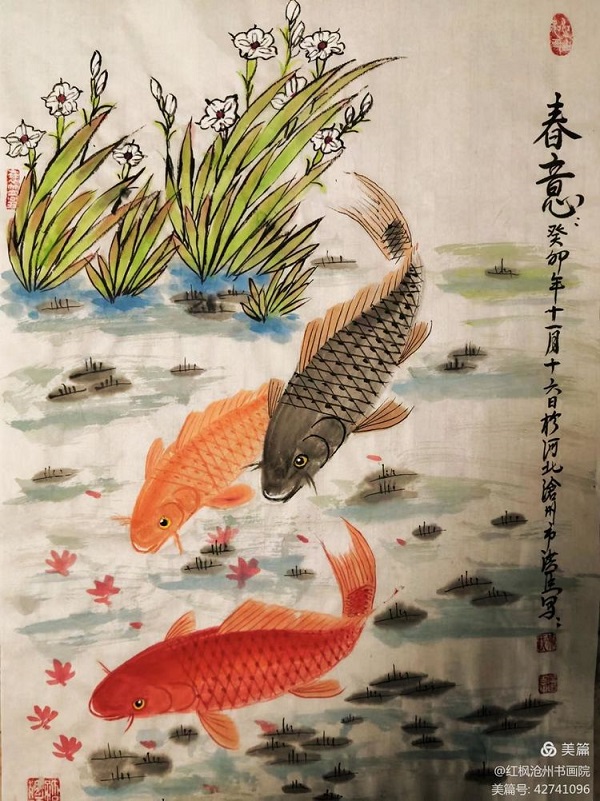 春意
癸卯年十一月十六日於河北滄州市
美篇
@红枫沧州书画院
美篇号: 42741096